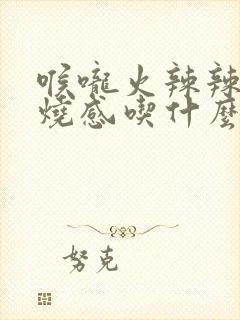 喉嚨火辣辣
燒感喫什麼
努克